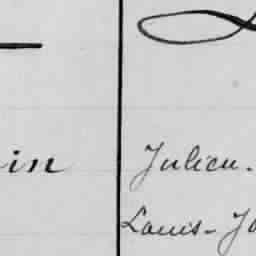 in Julien.
Louis-Jo